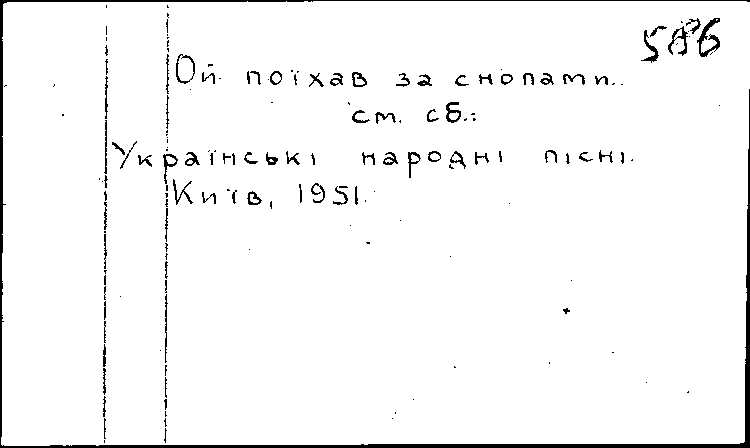 586
Ой поїхав за снопами..
см. сб.:
Українські народні пісні.
Київ, 1951.